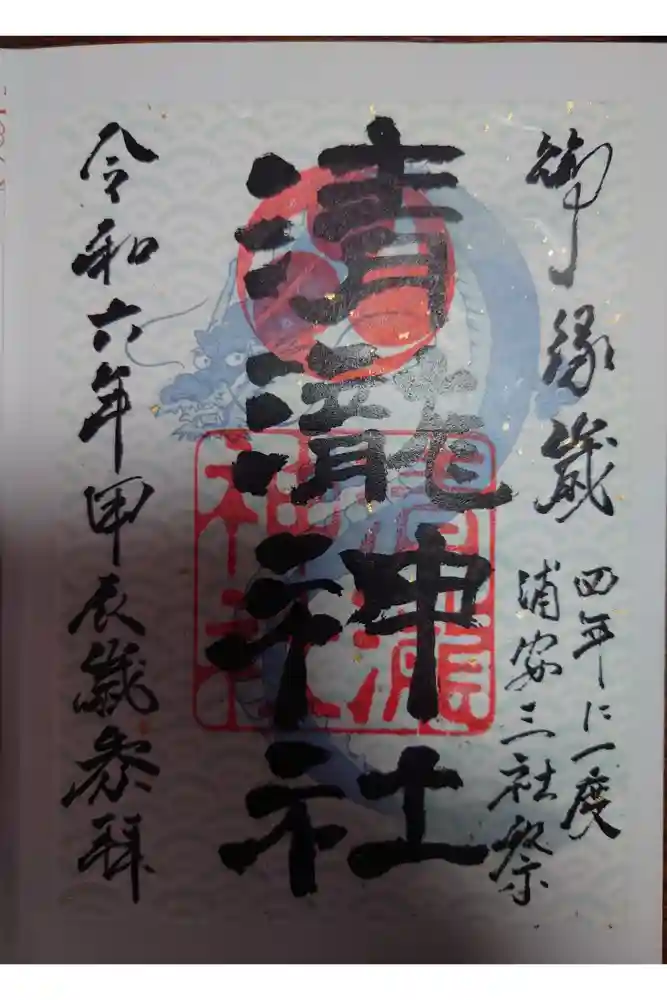 御縁歳
四年に一度
浦安三社祭
清瀧神社
清瀧神社
令和六年甲辰歳参拝